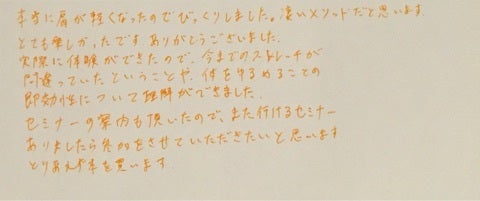 本当に肩が軽くなったのでびっくりしました。凄いメソッドだと思います.
とても楽しかったです.ありがとうございました.
実際に体験ができたので、今までのストレーチが
間違っていたということや、体をゆるめることの
即効性について理解ができました.
セミナーの案内も頂いたので、また行けるセミナー
ありましたら参加をさせていただきたいと思います
とりあえず本を買います.